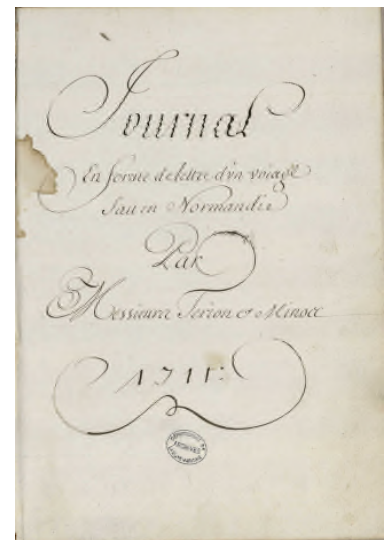 Journal
En forme de lettre d'vn voiage
fait en Normandie
Par
Messieurs Terion & Minoct
1711:
ARCHIVES